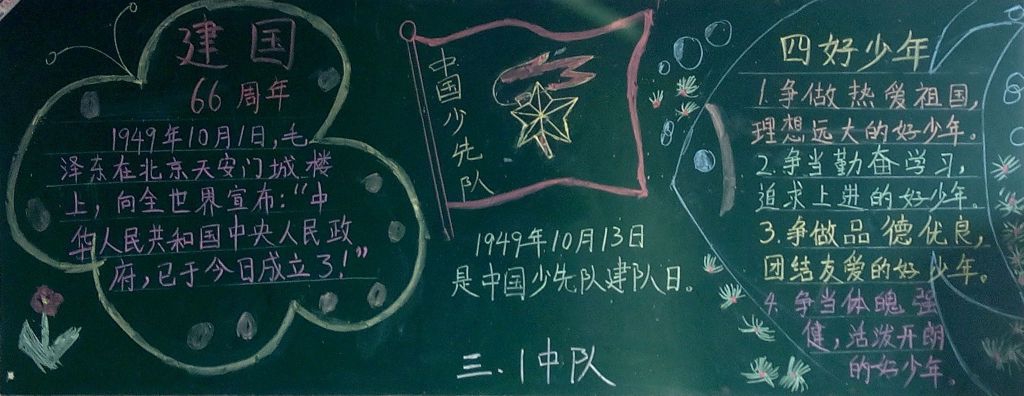 建国
66周年
1949年10月1日,毛
泽东在北京天安门城楼
上，向全世界宣布:“中
华人民共和国中央人民政
府,已于今日成立了!”
中国少先队
1949年10月13日
是中国少先队建队日。
三.1中队
四好少年
1.争做热爱祖国,
理想远大的好少年。
2.争当勤奋学习,
追求上进的好少年。
3.争做品德优良,
团结友爱的好少年。
4.争当体魄强
健,活泼开朗
的好少年。